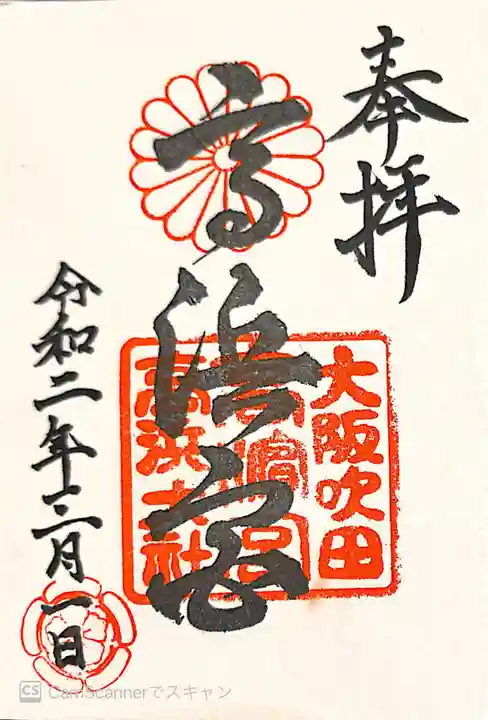 奉拝
高浜宮
大阪吹田
高濱宮
高浜大社
令和二年十二月一日
CS CamScannerでスキャン